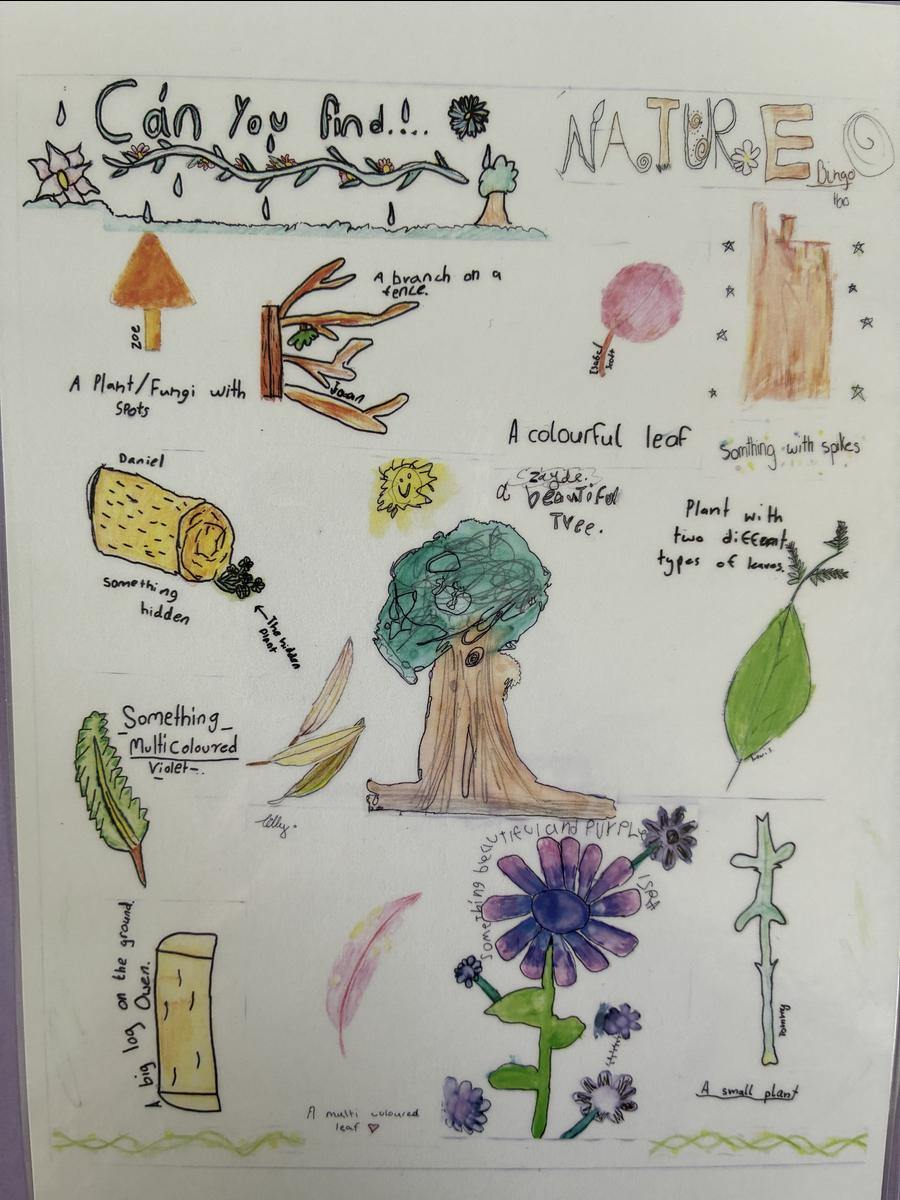 Can You find....
NATURE
Bingo
Zoe
A Plant/Fungi with
Spots
A branch on a
fence.
Joan
Isabel
Scott
A colourful leaf
Somthing with spikes
Daniel
Something
hidden
The hidden
plant
Zayde.
a beautiful
Tree.
Plant with
two different
types of leaves.
Louis
Something
Multicoloured
Violet
Lilly.
Something beautiful and purple
Isa
A big log on the ground.
Owen.
A multi coloured
leaf
Tommy
A small plant